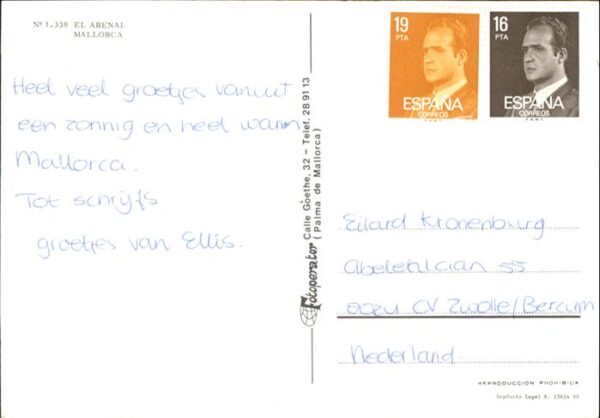 Nº 1.338 EL ARENAL
MALLORCA
Heel veel groetjes vanuit
een zonnig en heel warm
Mallorca.
Tot schrijfs
groetjes van Ellis.
Fotoperator Calle Goethe, 32 - Telef. 28 91 13
(Palma de Mallorca)
19
PTA
ESPAÑA
CORREOS
16
PTA
ESPAÑA
CORREOS
Eilard Kronenburg
55
CV Zwolle/Bercum
Nederland.
REPRODUCCION PROHIBIDA
Depósito Legal B.